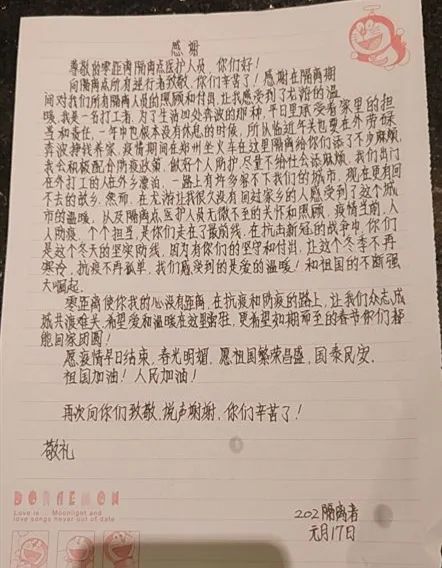 感谢
尊敬的零距离隔离点医护人员，你们好！
向隔离点所有逆行者致敬，你们辛苦了！感谢在隔离期
间对我们所有隔离人员的照顾和付出，让我感受到了无形的温
暖，我是一名打工者，为了生活四处奔波的那种，平日里承受着家里的担
当和责任，一年中也根本没有休息的时候，所以临近年关也要在外带
奔波挣钱养家，疫情期间在郑州坐火车在这里隔离给你们添了不少麻烦，
我会积极配合防疫政策，做好个人防护，尽量不给社会添麻烦，我们出门
在外打工的人在外乡漂泊，一路上有许多容不下我们的城市，现在更有回
不去的故乡，然而，在无形让我很久没有回过家乡的人感受到了这个城
市的温暖，从及隔离点医护人员无微不至的关怀和照顾，疫情当前，人
人防疫，个个担当，是你们走在了最前线，在抗击新冠的战争中，你们
是这个冬天的坚实防线，因为有你们的坚守和付出，让这个冬季不再
寒冷，抗疫不再孤单，我们感受到的是爱的温暖！和祖国的不断强
大崛起。
零距离使你我的心没有距离，在抗疫和防疫的路上，让我们众志成
城共渡难关，希望爱和温暖在这里萦驻，更希望如期而至的春节你们都
能回家团圆！
愿疫情早日结束，春光明媚，愿祖国繁荣昌盛，国泰民安。
祖国加油！人民加油！
再次向你们致敬，说声谢谢，你们辛苦了！
敬礼
202隔离者
元月17日
DORAEMON
Love is... Moonlight and
love songs never out of date